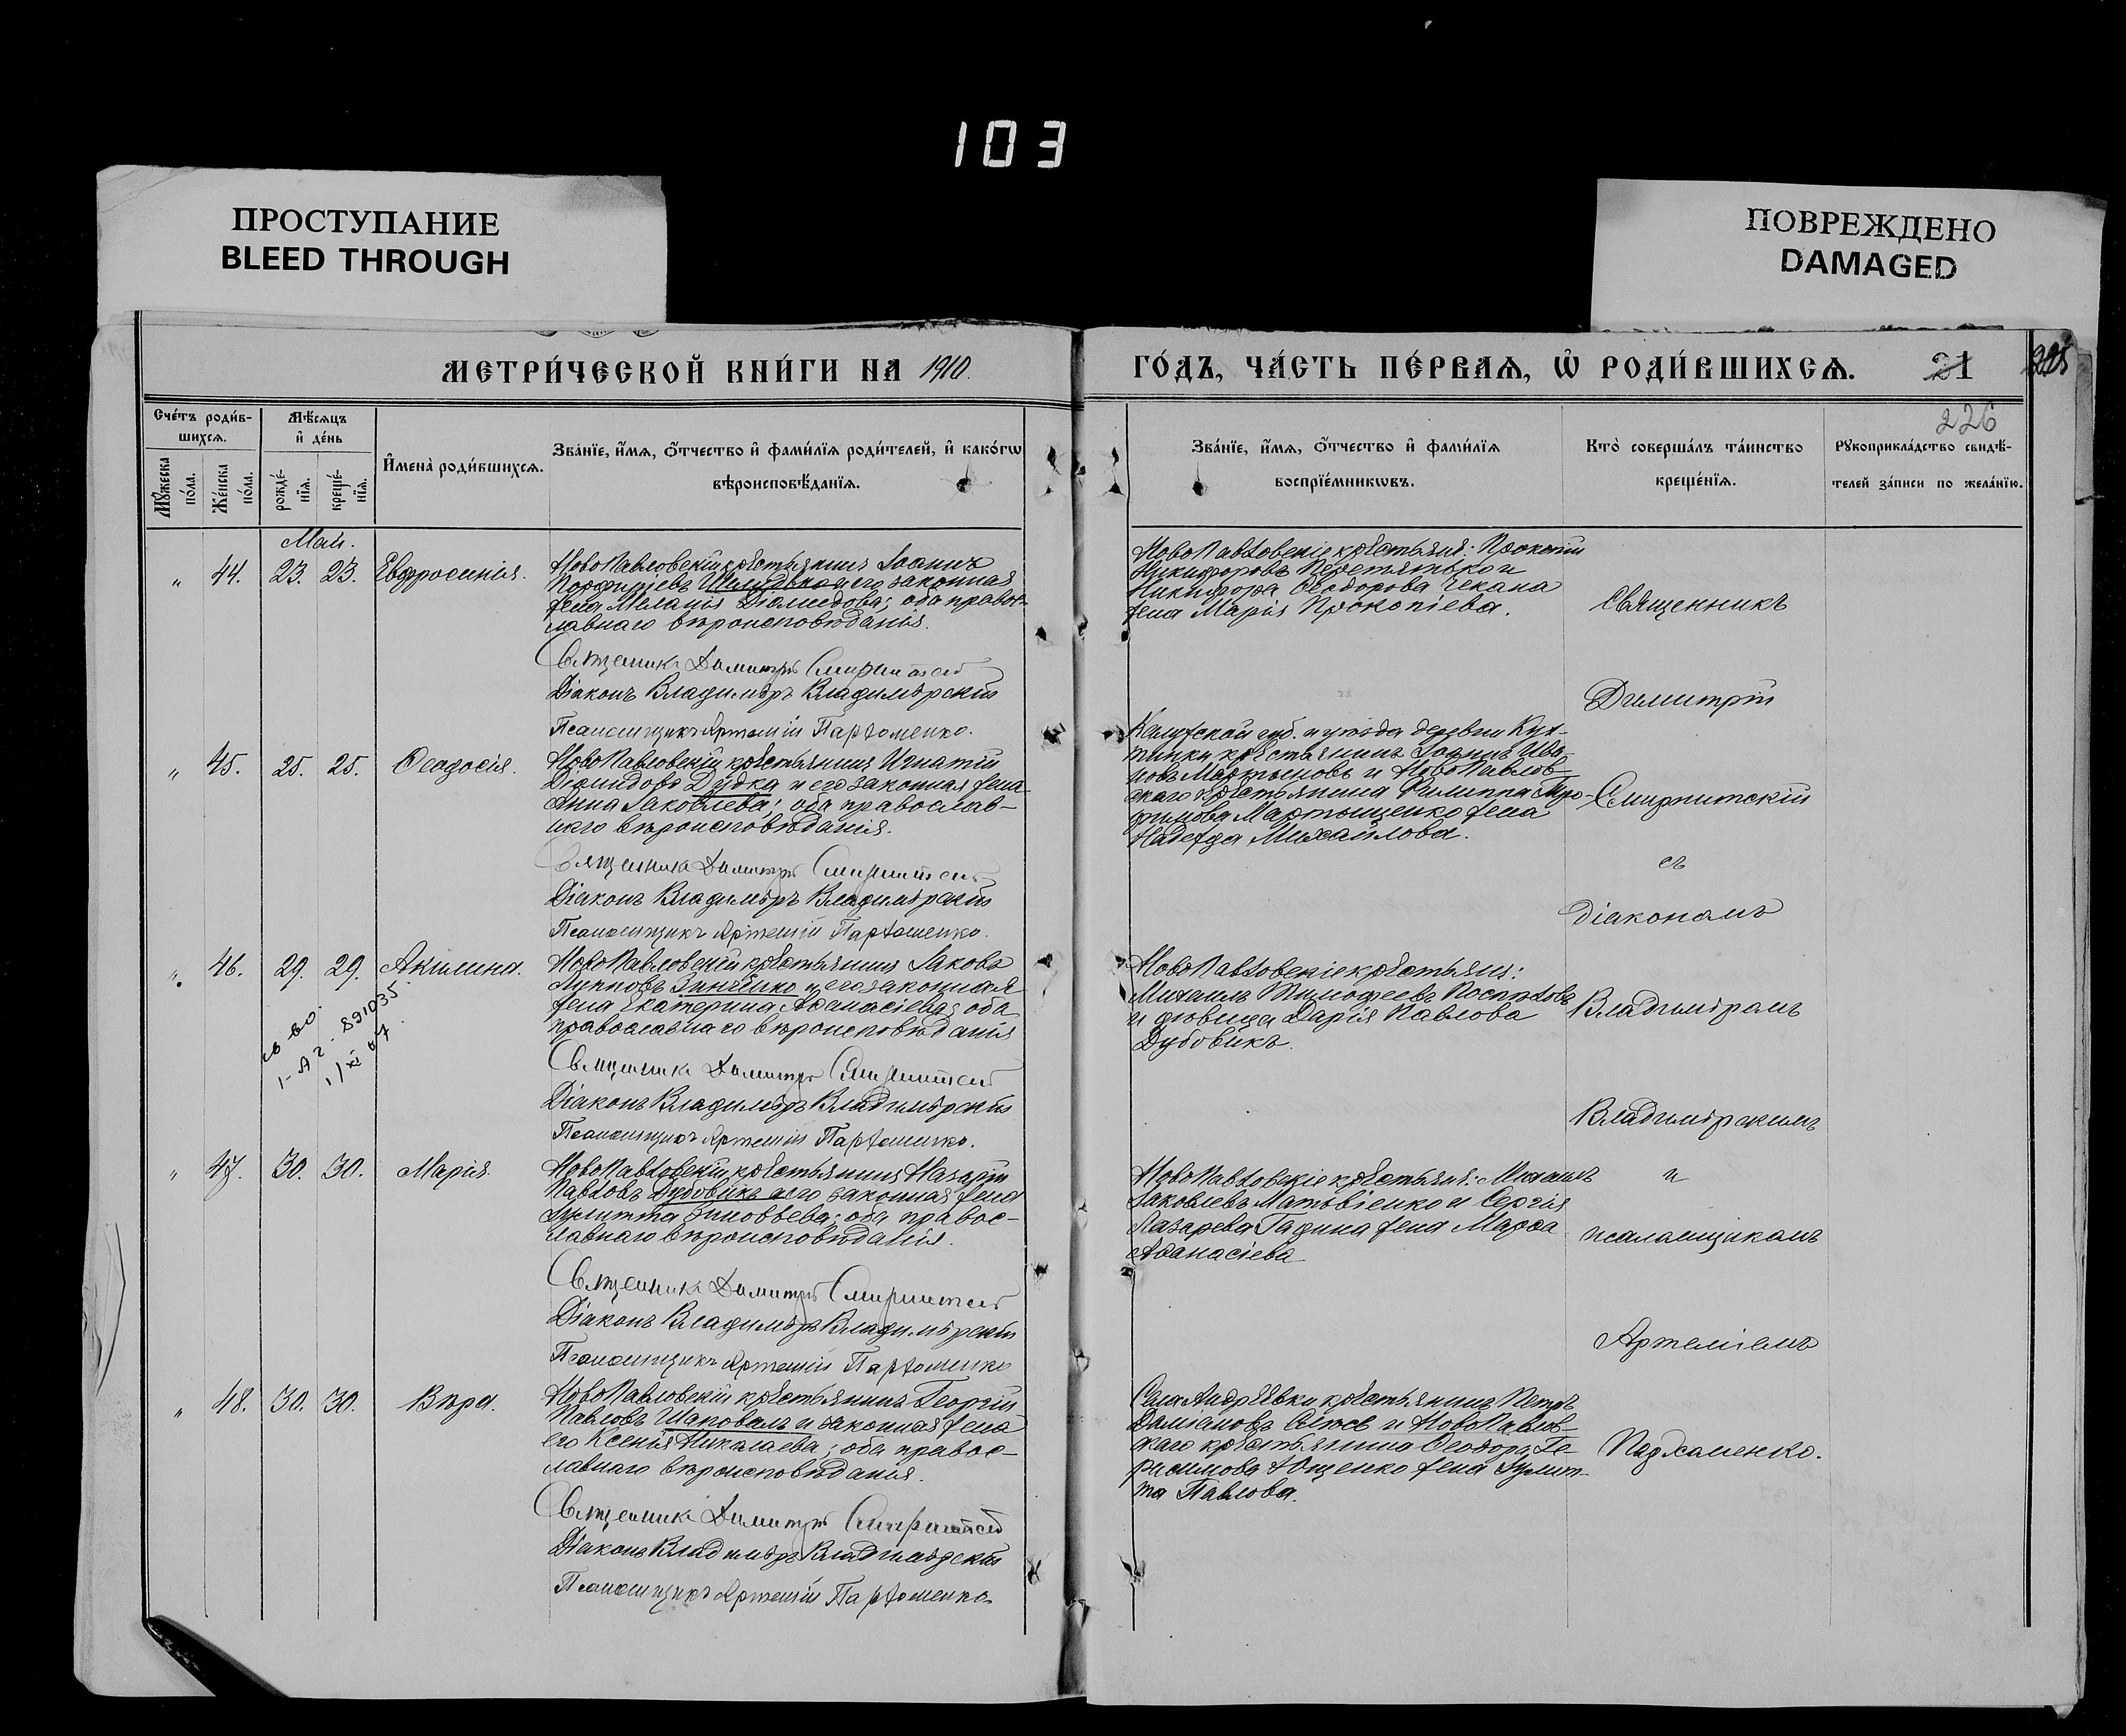 103
ПРОСТУПАНИЕ
BLEED THROUGH
ПОВРЕЖДЕНО
DAMAGED
МЕТРИ́ЧЕСКОЙ КНИ́ГИ НА 1910.
ГО́ДЪ, ЧА́СТЬ ПЕ́РВАѦ, Ѡ҆ РОДИ́ВШИХСѦ. 21
226
Сче́тъ роди́в-
шихсѧ.
Мꙋ́жеска по́ла.
Же́нска по́ла.
Мѣ́сѧцъ
и҆ де́нь
рожде́-
нїѧ.
креще́-
нїѧ.
И҆мена̀ роди́вшихсѧ.
Зва́нїе, и҆́мѧ, ѻ҆́тчество и҆ фами́лїѧ роди́телей, и҆ како́гѡ
вѣроисповѣ́данїѧ.
Зва́нїе, и҆́мѧ, ѻ҆́тчество и҆ фами́лїѧ
воспрїе́мникѡвъ.
Кто̀ соверша́лъ та́инство
креще́нїѧ.
Рꙋкоприкла́дство свидѣ́-
телей за́писи по жела́нїю.
Май.
„ 44. 23. 23. Евфросинія.
НовоПавловскій крестьянинъ Іоаннъ
Порфиріевъ и его законная
жена Меланія Діомидова; оба правос-
лавнаго вѣроисповѣданія.
Священникъ Димитрій Смирнитскій
Діаконъ Владиміръ Владимірскій
Псаломщикъ Артемій Пархоменко.
НовоПавловскіе крестьяне: Прокопій
Никифоровъ Перетятько и
Никифора Ѳеодорова Чекана
жена Марія Прокопіева.
„ 45. 25. 25. Ѳеодосія.
НовоПавловскій крестьянинъ Игнатій
Діомидовъ Дудка и его законная жена
Анна Іаковлева; оба православ-
наго вѣроисповѣданія.
Священникъ Димитрій Смирнитскій
Діаконъ Владиміръ Владимірскій
Псаломщикъ Артемій Пархоменко.
Калужской губ. и уѣзда деревни
крестьянинъ Іоаннъ Ива-
новъ Мартыновъ и НовоПавлов-
скаго крестьянина Филиппа Тро-
фимова Мартыщенко жена
Надежда Михайлова.
„ 46. 29. 29. Акилина.
НовоПавловскій крестьянинъ Іаковъ
Зинченко и его законная
жена Екатерина Аѳанасіева; оба
православнаго вѣроисповѣданія
Священникъ Димитрій Смирнитскій
Діаконъ Владиміръ Владимірскій
Псаломщикъ Артемій Пархоменко.
св-во
1-АГ-891035.
НовоПавловскіе крестьяне:
Михаилъ Тимофеевъ
и дѣвица Дарія Павлова
Дубовикъ.
„ 47. 30. 30. Марія.
НовоПавловскій крестьянинъ Назарій
Павловъ Дубовикъ и его законная жена
Іулитта Зиновьева; оба правос-
лавнаго вѣроисповѣданія.
Священникъ Димитрій Смирнитскій
Діаконъ Владиміръ Владимірскій
Псаломщикъ Артемій Пархоменко
НовоПавловскіе крестьяне: Михаилъ
Іаковлевъ Матвіенко и Сергія
Лазарева Гадина жена Марѳа
Аѳанасіева
„ 48. 30. 30. Вѣра.
НовоПавловскій крестьянинъ Георгій
Павловъ Шаповалъ и законная жена
его Ксенія Николаева; оба правос-
лавнаго вѣроисповѣданія.
Священникъ Димитрій Смирнитскій
Діаконъ Владиміръ Владимірскій
Псаломщикъ Артемій Пархоменко
Села Андреевки крестьянинъ Петръ
Даміановъ и НовоПавлов-
скаго крестьянина Ѳеодора Ге-
расимова Ющенко жена Іулит-
та Павлова.
Священникъ
Димитрій
Смирнитскій
съ
діакономъ
Владиміромъ
Владимірскимъ
и
псаломщикомъ
Артеміемъ
Пархоменко.